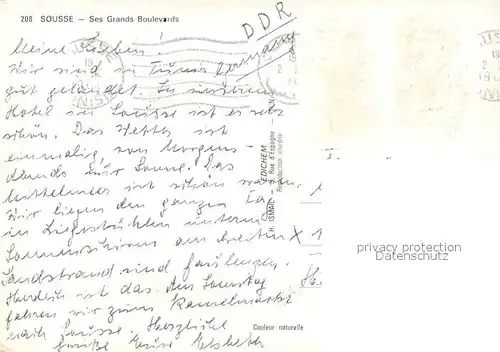 208 SOUSSE – Ses Grands Boulevards
DDR
Germany
Meine Lieben!
Wir sind in Tunis
gut gelandet. In unserem
Hotel in Sousse ist es sehr
schön. Das Wetter ist
einmalig, von Morgens –
abends nur Sonne. Das
Mittelmeer ist schön warm.
Wir liegen den ganzen Tag
in Liegestühlen unterm
Sonnenschirm am breiten
Sandstrand und faulenzen.
Herrlich ist das. Am Sonntag
fahren wir zum Kamelmarkt
nach Sousse. Herzliche
Grüße Eure Elsbeth
EDICHEM
Rue d'Espagne
Reproduction interdite
H. ISMAIL
Couleur naturelle
privacy protection
Datenschutz